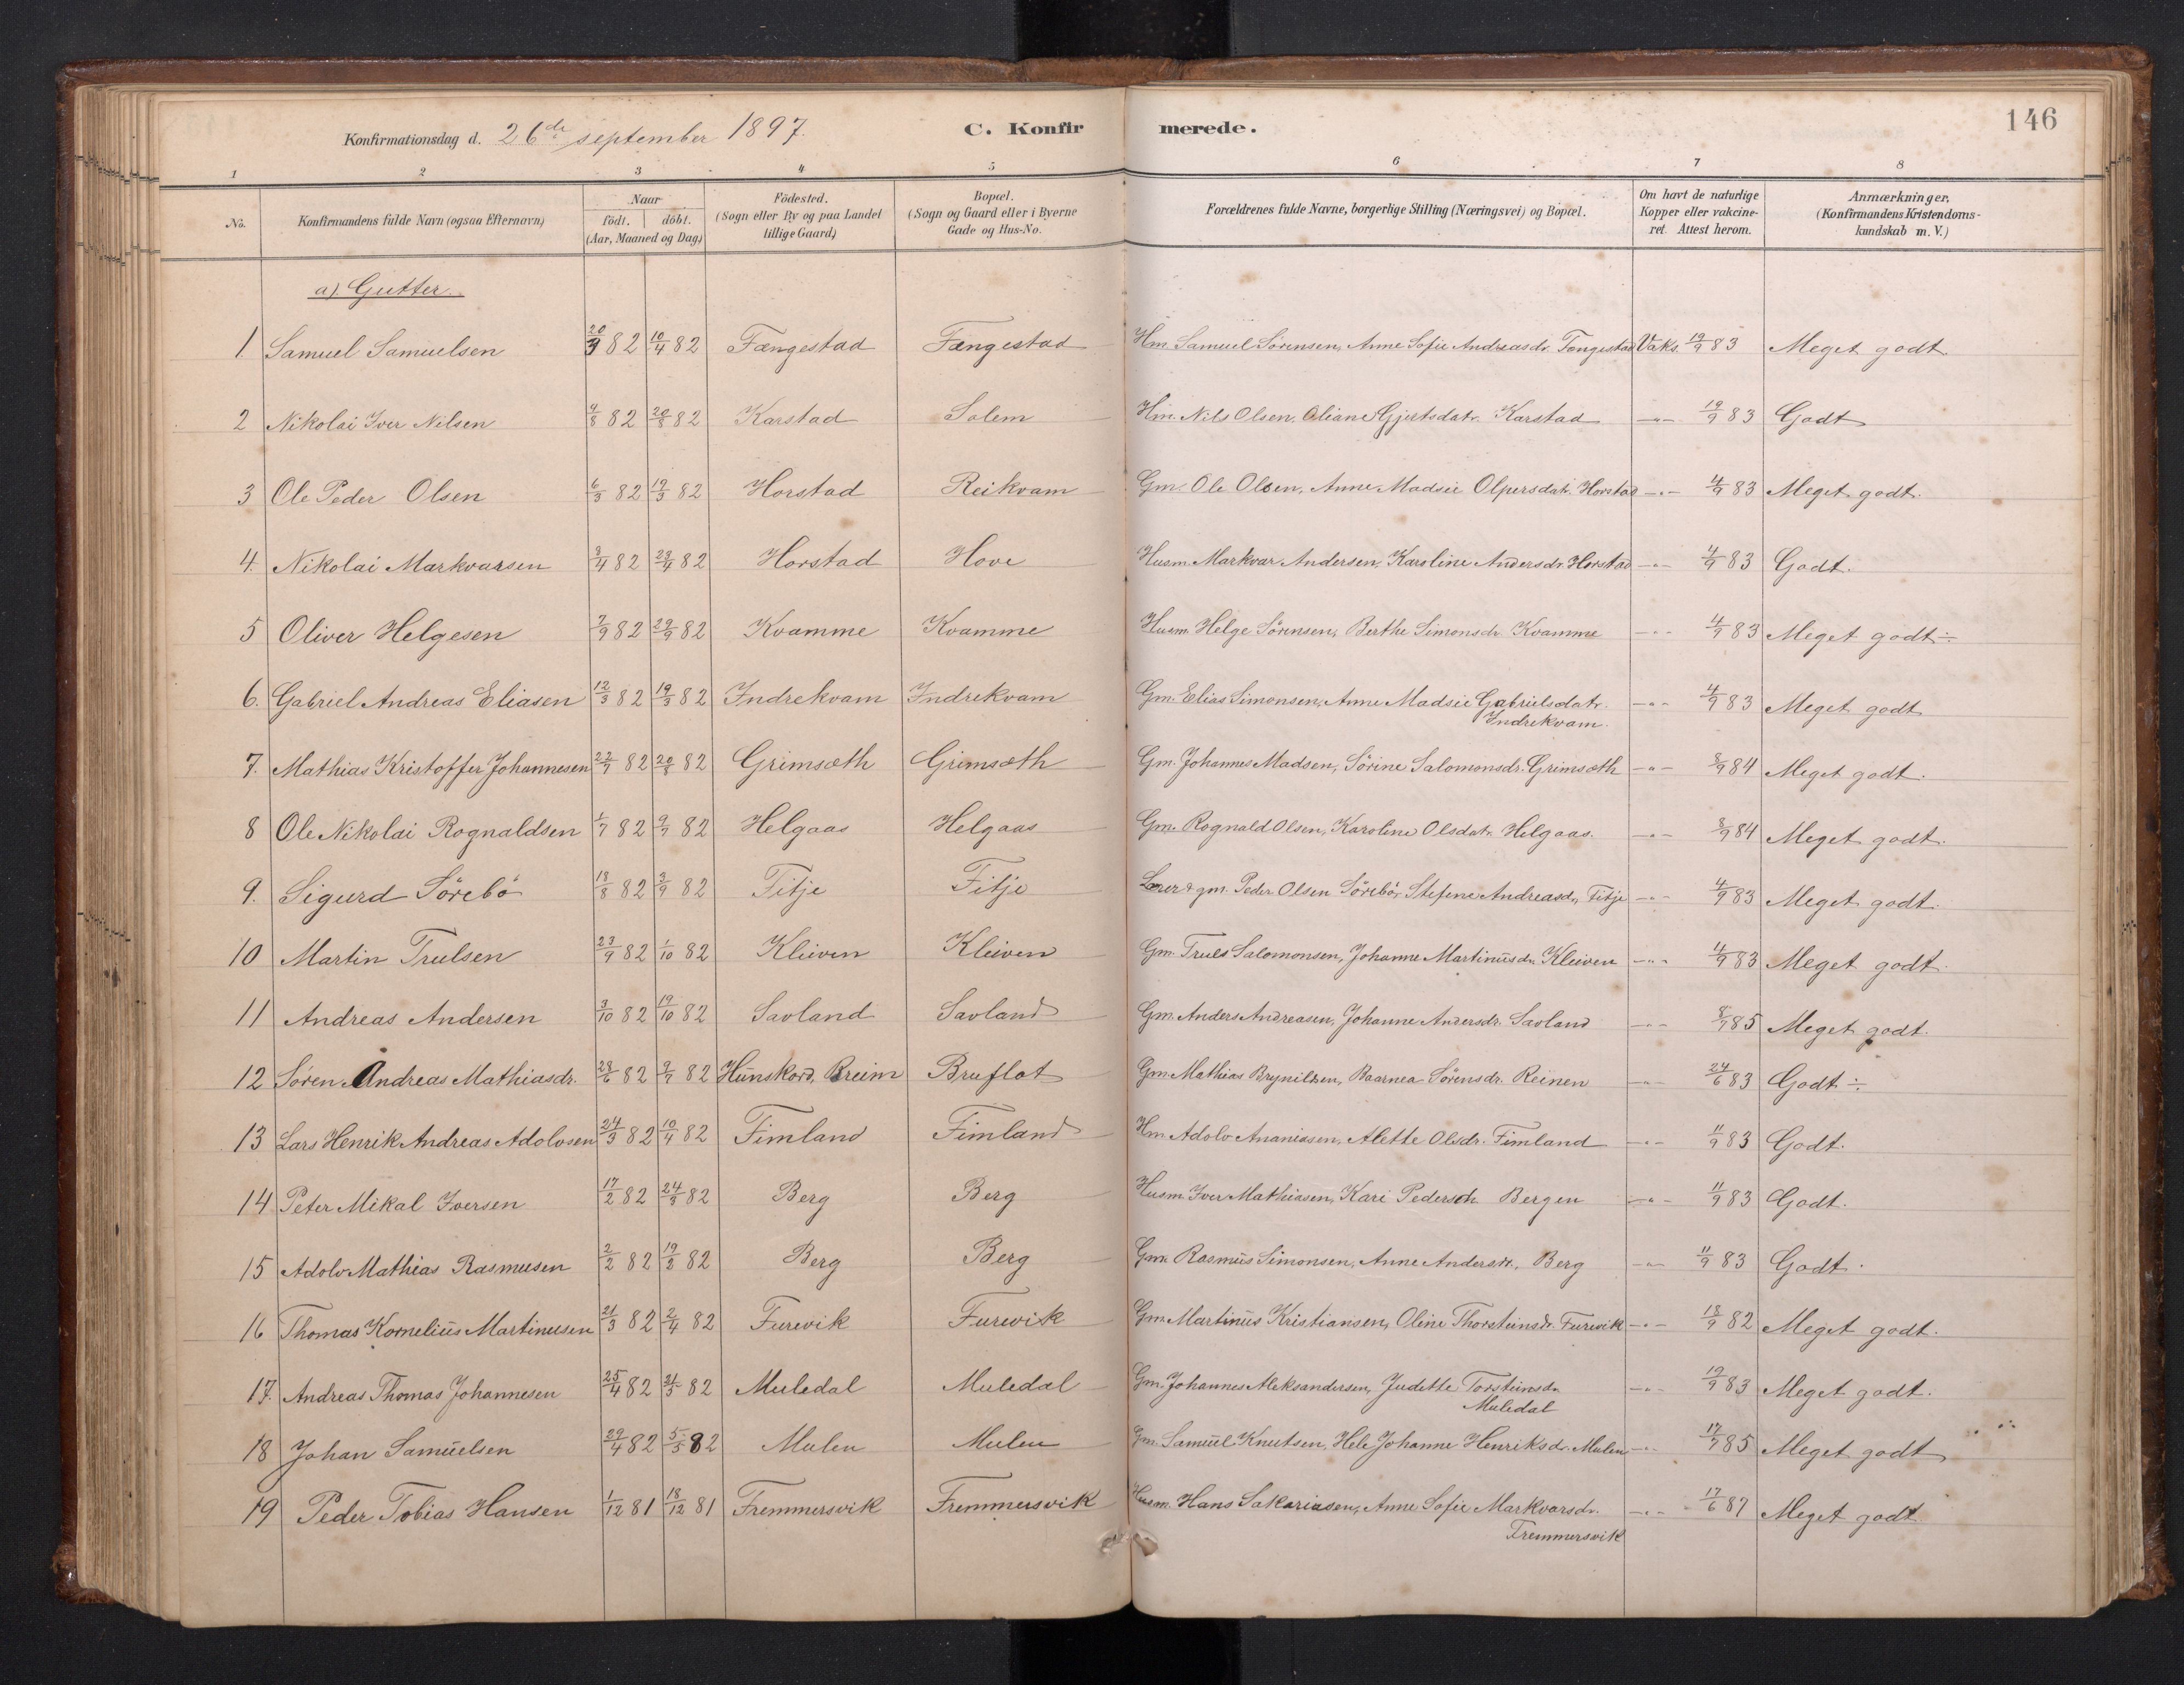 146
Konfirmationsdag d. 26de september 1897. C. Konfirmerede.
1 2 3 4 5 6 7 8
No. Konfirmandens fulde Navn (ogsaa Efternavn) Naar födt. döbt. (Aar, Maaned og Dag.) Födested. (Sogn eller By og paa Landet tillige Gaard) Bopæl. (Sogn og Gaard eller i Byerne Gade og Hus-No. Forældrenes fulde Navne, borgerlige Stilling (Næringsvei) og Bopæl. Om havt de naturlige Kopper eller vakcineret. Attest herom. Anmærkninger, (Konfirmandens Kristendomskundskab m. V.)
a). Gutter.
1. Samuel Samuelsen 20/3 82 10/4 82 Fængestad Fængestad Hm. Samuel Sörensen, Anne Sofie Andreasdr. Fængestad Vaks. 19/9 83 Meget godt.
2 Nikolai Iver Nilsen 4/8 82 20/8 82 Karstad Solem Hm. Nils Olsen, Oliane Gjertsdatr. Karstad -"- 19/9 83 Godt
3 Ole Peder Olsen 6/3 82 19/3 82 Horstad Reikvam Gm. Ole Olsen, Anne Madsie Olpersdatr. Horstad -"- 4/9 83 Meget godt.
4. Nikolai Markvarsen 3/4 82 23/4 82 Horstad Hove Husm. Markvar Andersen, Karoline Andersdr. Horstad -"- 4/9 83 Godt.
5 Oliver Helgesen 7/9 82 29/9 82 Kvamme Kvamme Husm. Helge Sörensen, Berthe Simonsdr. Kvamme -"- 4/9 83 Meget godt ÷
6. Gabriel Andreas Eliasen 12/3 82 19/3 82 Indrekvam Indrekvam Gm. Elias Simonsen, Anne Madsie Gabrielsdatr. -"- 4/9 83 Meget godt
Indrekvam.
7. Mathias Kristoffer Johannesen 22/7 82 20/8 82 Grimsæth Grimsæth Gm. Johannes Madsen, Sörine Salomonsdr. Grimsæth -"- 8/9 84 Meget godt.
8 Ole Nikolai Rognaldsen 1/7 82 9/7 82 Helgaas Helgaas Gm. Rognald Olsen, Karoline Olsdatr. Helgaas. -"- 8/9 84 Meget godt.
9. Sigurd Sörebö 18/8 82 3/9 82 Fitje Fitje Lærer & gm. Peder Olsen Sörebö, Stefine Andreasdr, Fitje -"- 4/9 83 Meget godt.
10 Martin Trulsen 23/9 82 1/10 82 Kleiven Kleiven Gm. Truls Salomonsen, Johanne Martinusdr. Kleiven -"- 4/9 83 Meget godt.
11 Andreas Andersen 3/10 82 19/10 82 Savland Savland Gm. Anders Andreasen, Johanne Andersdr. Savland -"- 8/9 85 Meget godt.
12 Sören Andreas Mathiasdr. 28/6 82 9/7 82 Hunskord, Breim Bruflot Gm. Mathias Brynilsen, Baarnea Sörensdr. Reinen -"- 24/6 83 Godt ÷
13 Lars Henrik Andreas Adolvsen 24/3 82 10/4 82 Fimland Fimland Hm. Adolv Ananiasen, Alette Olsdr. Fimland -"- 11/9 83 Godt.
14 Peter Mikal Iversen 17/2 82 24/3 82 Berg Berg Husm. Iver Mathiasen, Kari Pedersdr. Bergen -"- 11/9 83 Godt.
15 Adolv Mathias Rasmusen 2/2 82 19/2 82 Berg Berg Gm. Rasmus Simonsen, Anne Andersdr. Berg -"- 11/9 83 Godt.
16 Thomas Kornelius Martinusen 21/3 82 2/4 82 Furevik Furevik Gm. Martinus Kristiansen, Oline Thorsteinsdr. Furevik -"- 18/9 82 Meget godt.
17. Andreas Thomas Johannesen 25/4 82 21/5 82 Muledal Muledal Gm. Johannes Aleksandersen, Judette Torsteinsdr. -"- 19/9 83 Meget godt.
Muledal
18 Johan Samuelsen 29/4 82 5/5 82 Mulen Mulen Gm. Samuel Knutsen, Hele Johanne Henriksdr. Mulen -"- 17/9 85 Meget godt
19 Peder Tobias Hansen 1/12 81 18/12 81 Fremmersvik Fremmersvik Husm. Hans Sakariasen, Anne Sofie Markvarsdr. -"- 17/6 87 Meget godt.
Fremmersvik